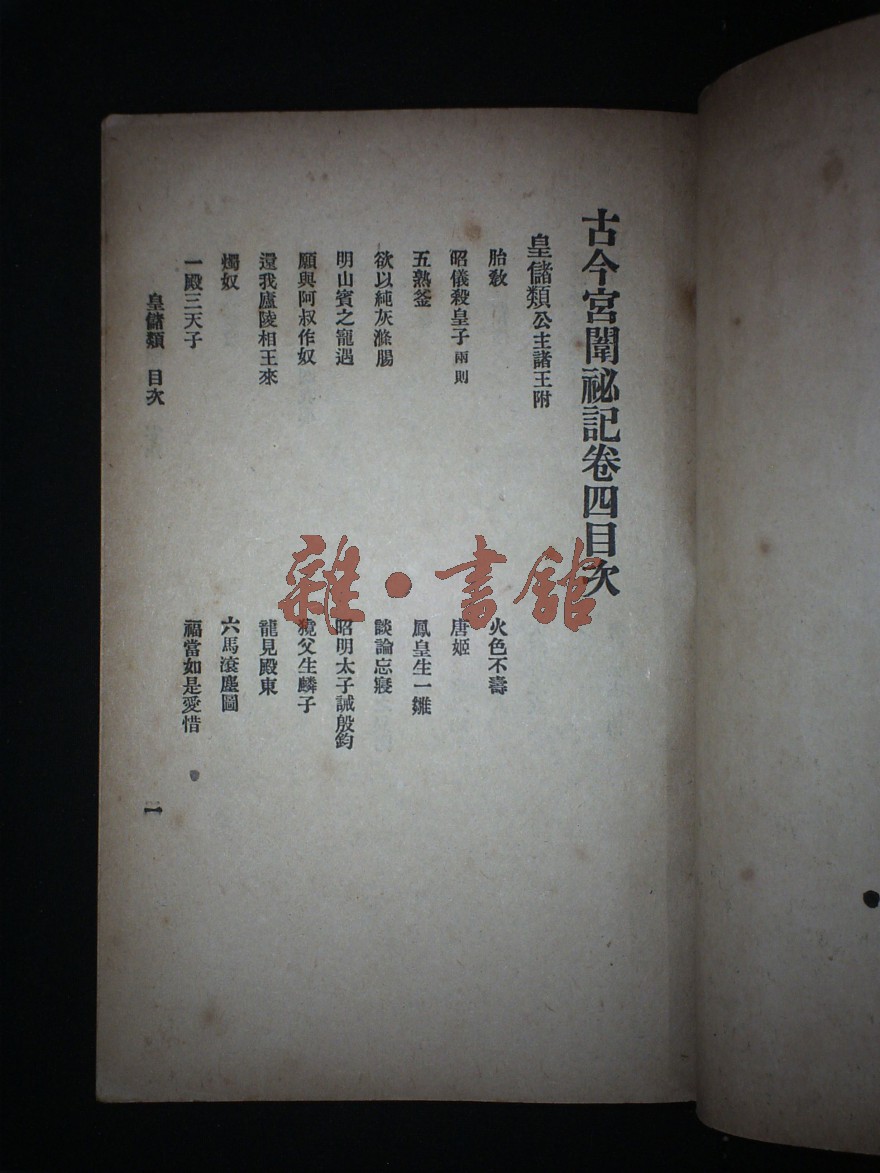 古今宮闈祕記卷四目次
皇儲類公主諸王附
胎敎
火色不壽
昭儀殺皇子兩則
唐姬
五熟釜
鳳皇生一雛
欲以純灰滌腸
談論忘寢
明山賓之寵遇
昭明太子誡殷鈞
願與阿叔作奴
獍父生麟子
還我廬陵相王來
龍見殿東
燭奴
六馬滾塵圖
一殿三天子
福當如是愛惜
皇儲類 目次
一
雜·書館